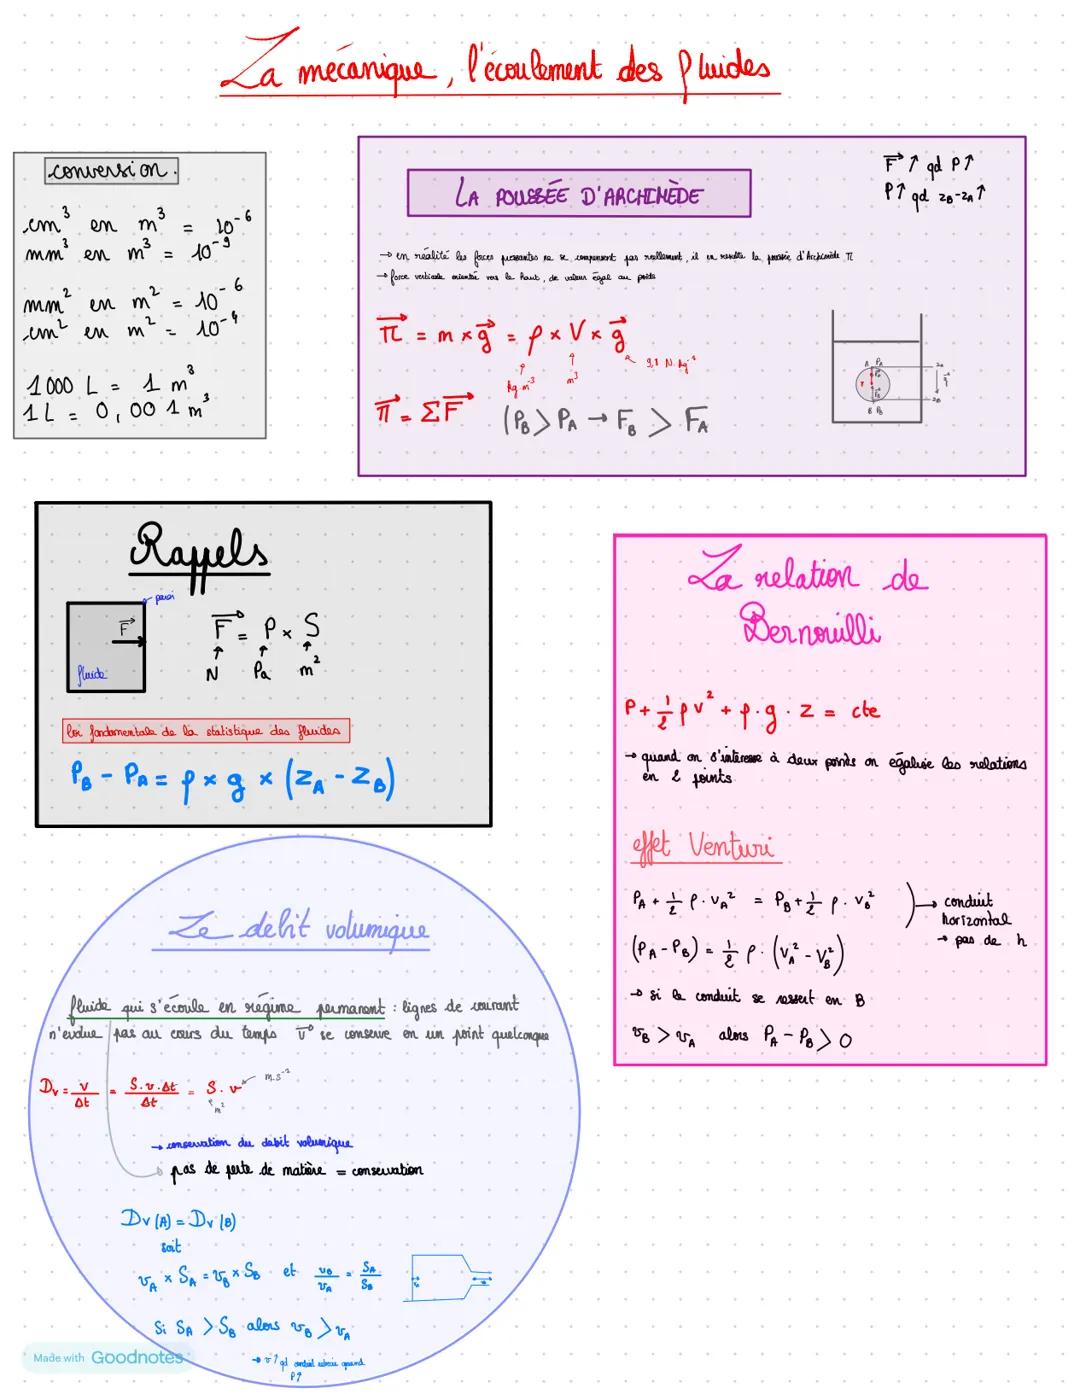 La mécanique, l'écoulement des fluides
conversion.
cm³ en m³ = 10⁻⁶
mm³ en m³ = 10⁻⁹
mm² en m² = 10⁻⁶
cm² en m² = 10⁻⁴
1000 L = 1 m³
1L = 0,001 m³
LA POUSSÉE D'ARCHIMÈDE
F⃗ ↑ qd P↑
P↑ qd zB-zA ↑
→ en réalité les forces pressantes ne se compensent pas réellement, il en resulte la poussée d'Archimède π
→ force verticale orientée vers le haut, de valeur égal au poids
π⃗ = m × g⃗ = ρ × V × g⃗
kg.m⁻³ m³ 9,81 N.kg⁻¹
π⃗ = ΣF⃗ (PB > PA → FB > FA
A PA
B PB
zA
zB
Rappels
paroi
F⃗
fluide
F⃗ = P × S
N Pa m²
loi fondamentale de la statistique des fluides
PB - PA = ρ × g × (zA - zB)
La relation de
Bernouilli
P + 1/2 ρv² + ρ.g.z = cte
→ quand on s'intéresse à deux points on égalise les relations
en 2 points
effet Venturi
PA + 1/2 ρ.vA² = PB + 1/2 ρ.vB² ) → conduit
horizontal
→ pas de h
(PA - PB) = 1/2 ρ.(vA² - vB²)
→ si le conduit se ressert en B
vB > vA alors PA - PB > 0
Le débit volumique
fluide qui s'écoule en régime permanent : lignes de courant
n'évolue pas au cours du temps v⃗ se conserve en un point quelconque
Dv = V/Δt = S.v.Δt/Δt = S.v
m.s⁻¹
m²
→ conservation du débit volumique
pas de perte de matière = conservation
Dv (A) = Dv (B)
soit
vA × SA = vB × SB et vB/vA = SA/SB
Si SA > SB alors vB > vA
→ v↑ qd
P↑
Made with Goodnotes